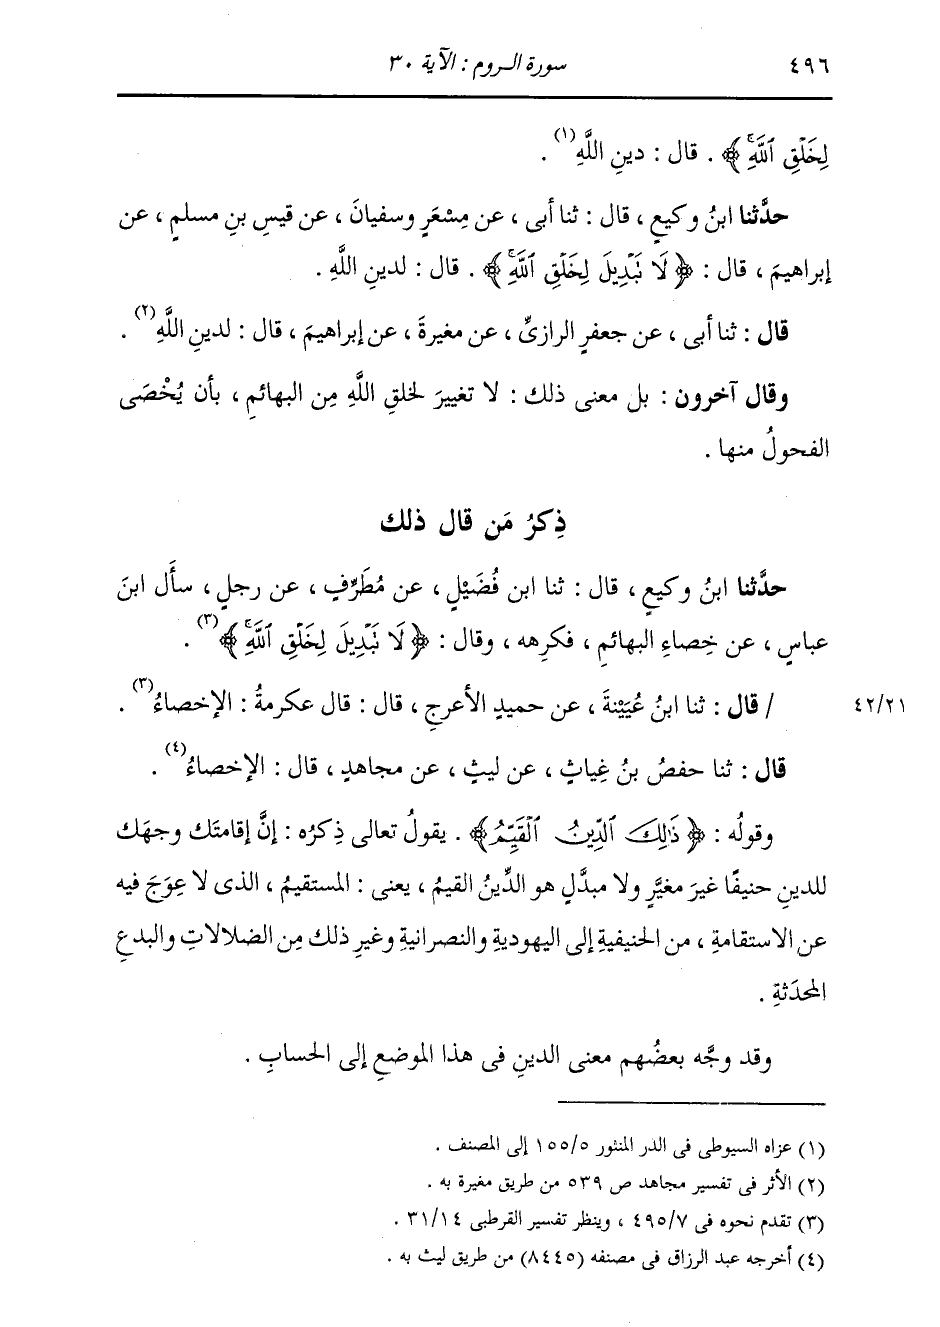 ٤٩٦ سورة الروم : الآية ٣٠
لِخَلْقِ ٱللَّهِۚ﴾ . قال : دينِ اللَّهِ(١) .
حدَّثنا ابنُ وكيعٍ ، قال : ثنا أبى ، عن مِسْعَرٍ وسفيانَ ، عن قيسِ بنِ مسلمٍ ، عن
إبراهيمَ ، قال : ﴿لَا نَبْدِيلَ لِخَلْقِ ٱللَّهِۚ﴾ . قال : لدينِ اللَّهِ .
قال : ثنا أبى ، عن جعفرٍ الرازىِّ ، عن مغيرةَ ، عن إبراهيمَ ، قال : لدينِ اللَّهِ(٢) .
وقال آخرون : بل معنى ذلك : لا تغييرَ لخلقِ اللَّهِ مِن البهائمِ ، بأن يُخْصَى
الفحولُ منها .
ذِكرُ مَن قال ذلك
حدَّثنا ابنُ وكيعٍ ، قال : ثنا ابن فُضَيْلٍ ، عن مُطَرِّفٍ ، عن رجلٍ ، سأَل ابنَ
عباسٍ ، عن خِصاءِ البهائمِ ، فكرِهه ، وقال : ﴿لَا نَبْدِيلَ لِخَلْقِ ٱللَّهِۚ﴾(٣) .
٤٢/٢١ / قال : ثنا ابنُ عُيَيْنةَ ، عن حميدٍ الأعرجِ ، قال : قال عكرمةُ : الإخصاءُ(٣) .
قال : ثنا حفصُ بنُ غِياثٍ ، عن ليثٍ ، عن مجاهدٍ ، قال : الإخصاءُ(٤) .
وقولُه : ﴿ذَٰلِكَ ٱلدِّينُ ٱلْقَيِّمُ﴾ . يقولُ تعالى ذِكرُه : إنَّ إقامتَك وجهَك
للدينِ حنيفًا غيرَ مغيَّرٍ ولا مبدَّلٍ هو الدِّينُ القيمُ ، يعنى : المستقيمُ ، الذى لا عِوَجَ فيه
عن الاستقامةِ ، من الحنيفيةِ إلى اليهوديةِ والنصرانيةِ وغيرِ ذلك مِن الضلالاتِ والبدعِ
المحدَثةِ .
وقد وجَّه بعضُهم معنى الدينِ فى هذا الموضعِ إلى الحسابِ .
(١) عزاه السيوطى فى الدر المنثور ١٥٥/٥ إلى المصنف .
(٢) الأثر فى تفسير مجاهد ص ٥٣٩ من طريق مغيرة به .
(٣) تقدم نحوه فى ٤٩٥/٧ ، وينظر تفسير القرطبى ٣١/١٤ .
(٤) أخرجه عبد الرزاق فى مصنفه (٨٤٤٥) من طريق ليث به .